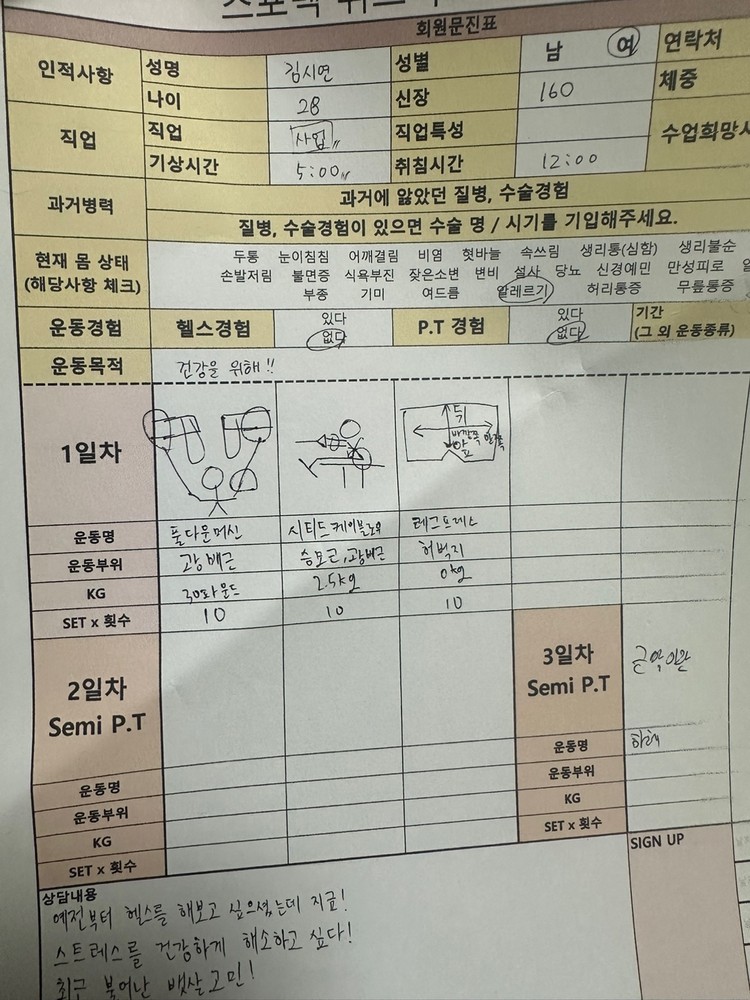 회원문진표
인적사항 성명 김시연 성별 남 여 연락처
나이 28 신장 160 체중
직업 직업 사업 직업특성 수업희망시
기상시간 5:00 취침시간 12:00
과거병력 과거에 앓았던 질병, 수술경험
질병, 수술경험이 있으면 수술 명 / 시기를 기입해주세요.
현재 몸 상태
(해당사항 체크)
두통 눈이침침 어깨결림 비염 혓바늘 속쓰림 생리통(심함) 생리불순
손발저림 불면증 식욕부진 잦은소변 변비 설사 당뇨 신경예민 만성피로
부종 기미 여드름 알레르기 허리통증 무릎통증
운동경험 헬스경험 있다 없다 P.T 경험 있다 없다 기간
(그 외 운동종류)
운동목적 건강을 위해!!
1일차
뒤
바깥쪽 안쪽
앞
운동명 풀다운머신 시티드케이블로우 레그프레스
운동부위 광배근 승모근,광배근 허벅지
KG 30파운드 2.5kg 0kg
SET x 횟수 10 10 10
2일차
Semi P.T
3일차
Semi P.T
운동명
운동부위
KG
SET x 횟수
운동명
운동부위
KG
SET x 횟수
SIGN UP
상담내용
예전부터 헬스를 해보고 싶으셨는데 지금!
스트레스를 건강하게 해소하고 싶다!
최근 불어난 뱃살고민!